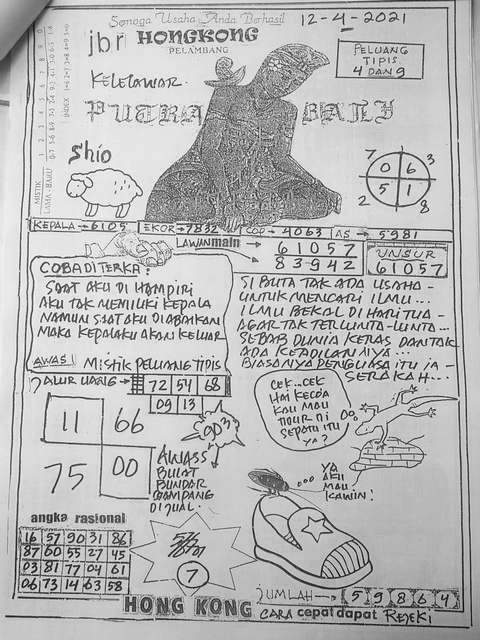 Semoga Usaha Anda Berhasil
12-4-2021
jbr HONGKONG
PELAMBANG
PELUANG
TIPIS
4 DAN 9
KELELAWAR
PUTRA BALI
Shio
MISTIK
LAMA - BARU
INDEX
7 3
0 6
5 1
2 8
KEPALA → 6105 EKOR → 7832 COP → 4063 AS → 5981
LAWAN main → 61057
83942
UNSUR
61057
COBA DITERKA:
SAAT AKU DI HAMPIRI
AKU TAK MEMILIKI KEPALA
NAMUN SAAT AKU DIABAIKAN
MAKA KEPALAKU AKAN KELUAR
AWAS! MISTIK PELUANG TIPIS
SI BUTA TAK ADA USAHA -
UNTUK MENCARI ILMU...
ILMU BEKAL DI HARI TUA -
AGAR TAK TERLUNTA-LUNTA...
SEBAB DUNIA KERAS DAN TAK
ADA KEADILANNYA...
BIASANYA PENGUASA ITU IA -
SERAKAH...
JALUR UANG → 72 54 68
09 13
11 66
75 00
AWASS
BULAT
BUNDAR
GAMPANG
DI JUAL.
CEK...CEK
HAI KECOA
KAU MAU
TIDUR DI
SEPATU ITU
YA?
YA
AKU
MAU
KAWIN!
angka rasional
16 57 90 31 86
87 00 55 27 45
03 81 77 04 61
06 73 14 63 58
7
JUMLAH → 5 9 8 6 4
HONG KONG CARA cepat dapat REJEKI